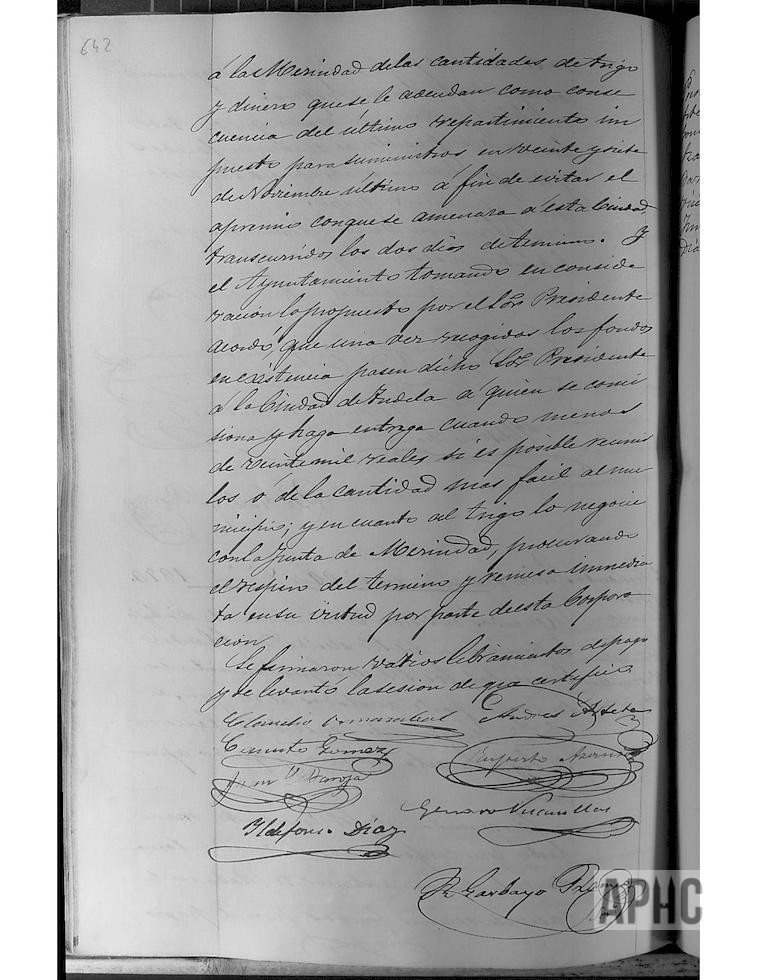 642
á la Merindad de las cantidades de trigo
y dinero que se le adeudan como conse
cuencia del último repartimiento im
puesto para suministros en veinte y siete
de Noviembre último á fin de evitar el
apremio con que se amenaza á esta Ciudad
transcurridos los dos dias de termino. Y
el Ayuntamiento tomando en conside
racion lo propuesto por el Sor Presidente
acordó, que una vez recogidos los fondos
en existencia pase dicho Sor Presidente
á la Ciudad de Tudela á quien se comi
siona y haga entrega cuando menos
de veinte mil reales si es posible reunir
los ó de la cantidad mas facil al mu
nicipio; y en cuanto al trigo lo negocie
con la Junta de Merindad, procurando
el respiro del termino y remesa inmedia
ta en su virtud por parte de esta Corpora
cion.
Se firmaron varios libramientos de pago
y se levantó la sesion de que certifico
Claudio Andres
Canuto Gomez Ruperto
Baroja
Genaro
Ildefonso Diaz
Garbayo
APHC